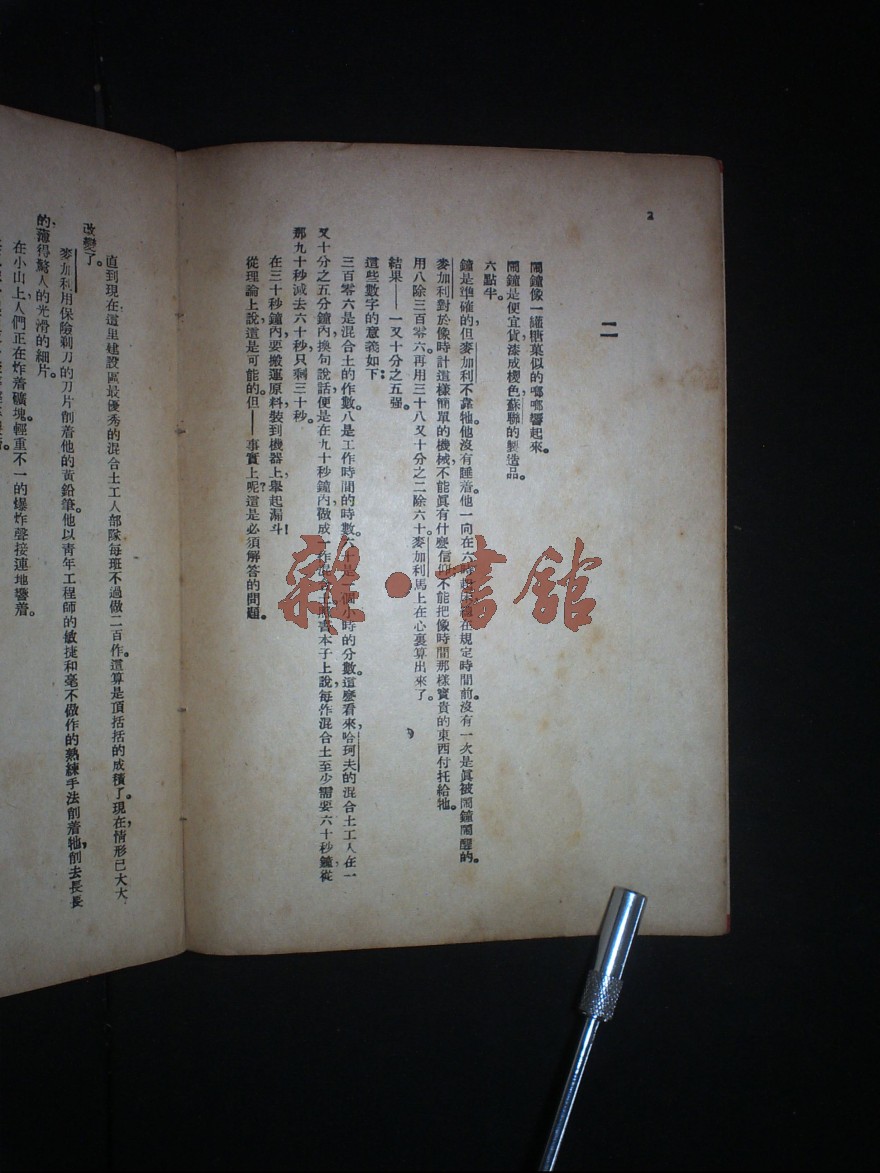 2
二
鬧鐘像一罎糖菓似的啷啷響起來。
鬧鐘是便宜貨漆成椶色，蘇聯的製造品。
六點半。
鐘是準確的，但麥加利不靠牠。他沒有睡着。他一向在六
在規定時間前。沒有一次是眞被鬧鐘鬧醒的。
麥加利對於像時計這樣簡單的機械，不能眞有什麼信仰，不能把像時間那樣寶貴的東西付托給牠。
用八除三百零六。再用三十八又十分之二除六十。麥加利馬上在心裏算出來了。
結果——一又十分之五强。
這些數字的意義如下：
三百零六是混合土的作數。八是工作時間的時數。六十是一個小時的分數。這麼看來，哈珂夫的混合土工人在一
又十分之五分鐘內，換句說話，便是在九十秒鐘內，做成一作混合土。照書本子上說，每作混合土至少需要六十秒鐘。從
那九十秒減去六十秒，只剩三十秒。
在三十秒鐘內，要搬運原料，裝到機器上，舉起漏斗！
從理論上說，這是可能的。但——事實上呢？這是必須解答的問題。
直到現在，這里建設區最優秀的混合土工人部隊每班不過做二百作。這算是頂括括的成積了。現在，情形已大大
改變了。
麥加利用保險剃刀的刀片削着他的黃鉛筆。他以靑年工程師的敏捷和毫不做作的熟練手法削着牠，削去長長
的，薄得驚人的光滑的細片。
在小山上，人們正在炸着礦塊。輕重不一的爆炸聲接連地響着。
雜·書館